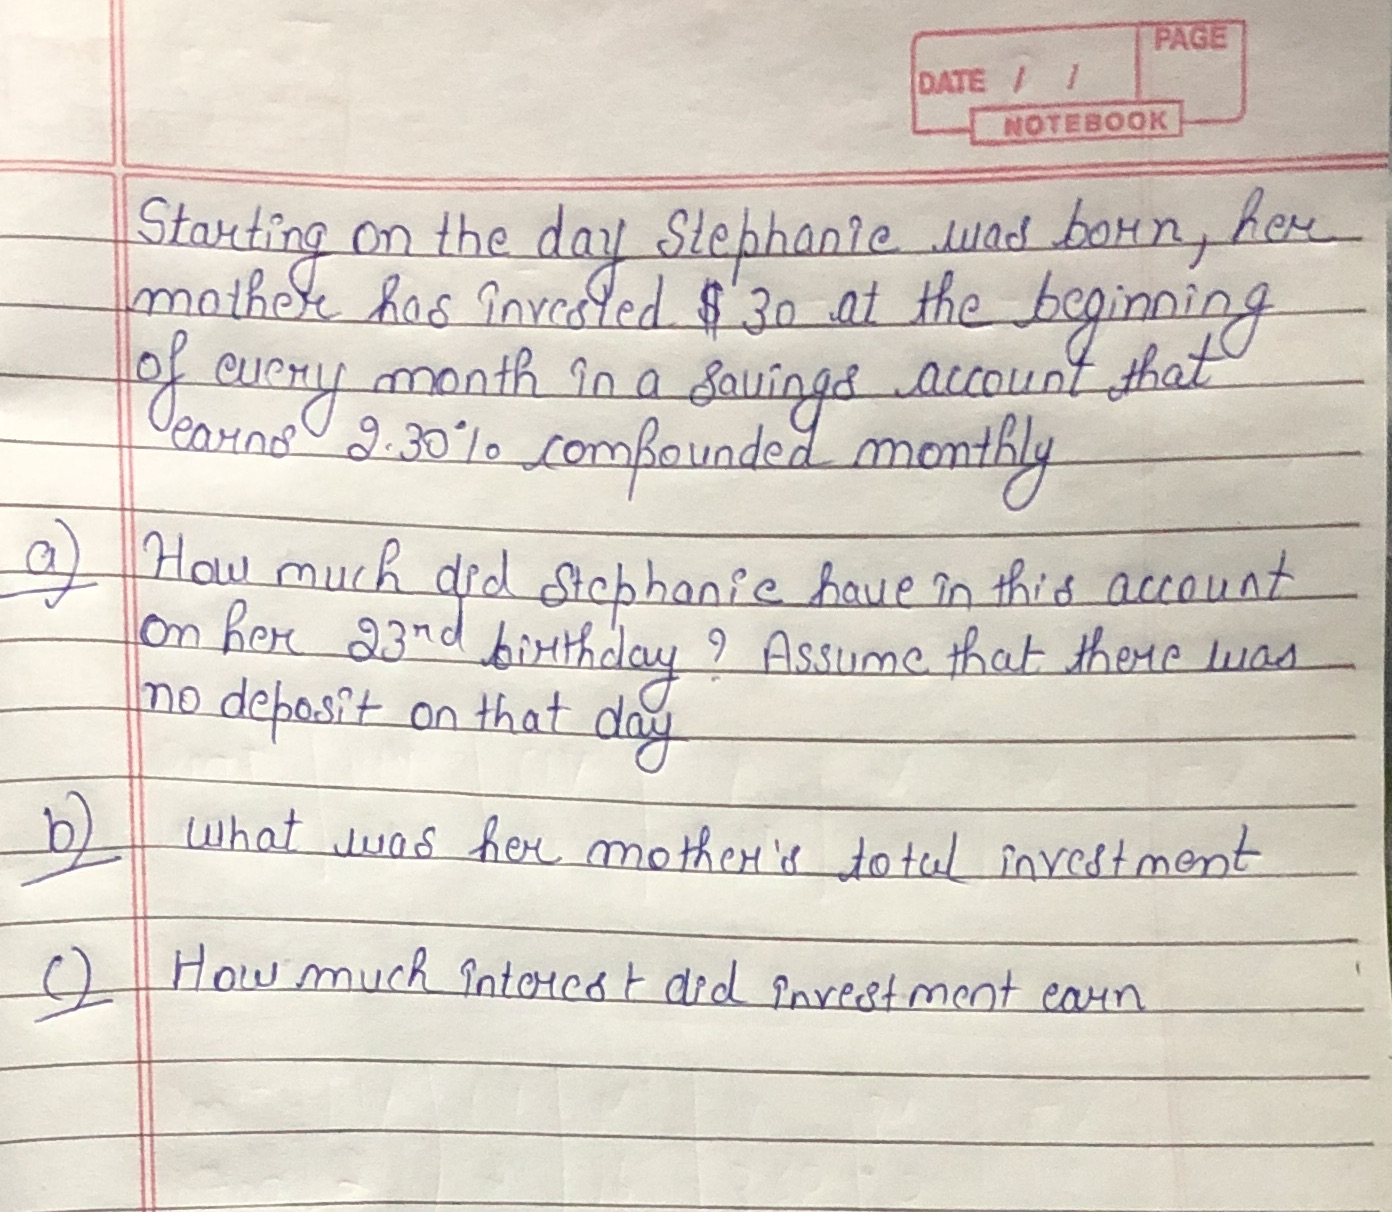 PAGE
DATE / /
NOTEBOOK
Starting on the day Stephanie was born, her
mother has invested $ 30 at the beginning
of every month in a savings account that
earns 2.30% compounded monthly
a) How much did Stephanie have in this account
on her 23nd birthday? Assume that there was
no deposit on that day
b) What was her mother's total investment
c) How much interest did investment earn